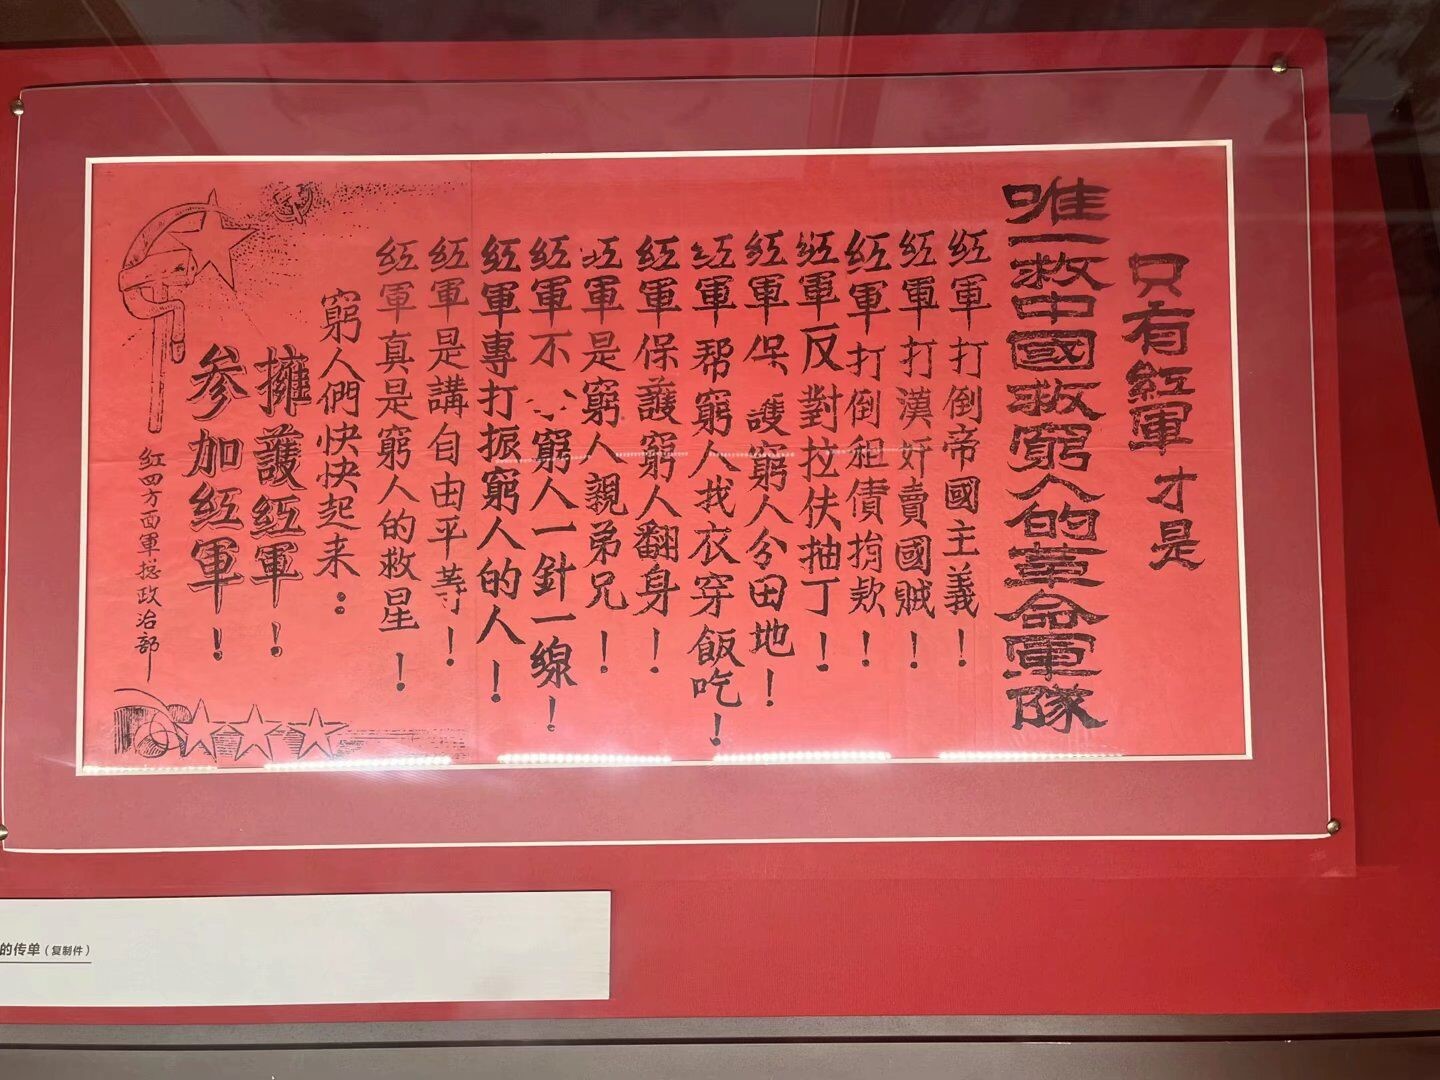 只有紅軍才是
唯一救中國救窮人的革命軍隊
紅軍打倒帝國主義！
紅軍打漢奸賣國賊！
紅軍打倒租債捐款！
紅軍反對拉伕抽丁！
紅軍保護窮人分田地！
紅軍帮窮人找衣穿飯吃！
紅軍保護窮人翻身！
紅軍是窮人親弟兄！
紅軍不窮人一針一線！
紅軍專打振窮人的人！
紅軍是講自由平等！
紅軍真是窮人的救星！
窮人們快快起来：
擁護紅軍！
参加紅軍！
紅四方面軍総政治部
的传单（复制件）